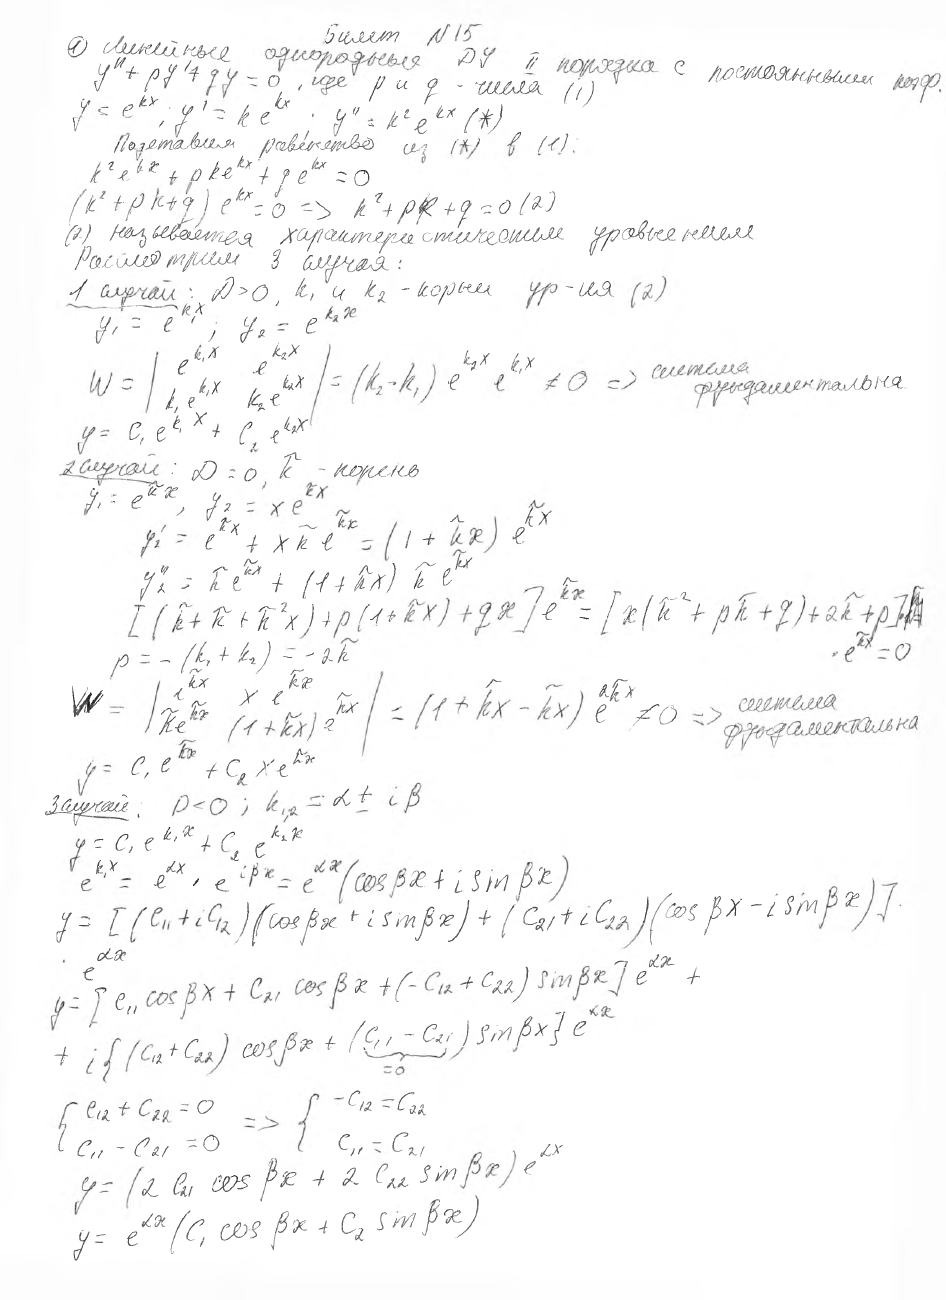 Билет N15
① Линейные однородные ДУ II порядка с постоянными коэф.
y'' + py' + qy = 0, где p и q - числа (1)
y = e^{kx}; y' = k e^{kx}; y'' = k² e^{kx} (*)
Подставим равенство из (*) в (1):
k² e^{kx} + pke^{kx} + qe^{kx} = 0
(k² + pk + q) e^{kx} = 0 => k² + pk + q = 0 (2)
(2) называется характеристическим уравнением
Рассмотрим 3 случая:
1 случай: D>0, k₁ и k₂ - корни ур-ия (2)
y₁ = e^{k₁x}; y₂ = e^{k₂x}
W = | e^{k₁x} e^{k₂x} |
| k₁e^{k₁x} k₂e^{k₂x} | = (k₂-k₁) e^{k₂x} e^{k₁x} ≠ 0 => система фундаментальна
y = C₁e^{k₁x} + C₂e^{k₂x}
2 случай: D = 0, k̃ - корень
y₁ = e^{k̃x}, y₂ = xe^{k̃x}
y₂' = e^{k̃x} + xk̃e^{k̃x} = (1 + k̃x) e^{k̃x}
y₂'' = k̃e^{k̃x} + (1+k̃x) k̃ e^{k̃x}
[(k̃ + k̃ + k̃²x) + p(1+k̃x) + qx] e^{k̃x} = [x(k̃² + pk̃ + q) + 2k̃ + p]
· e^{k̃x} = 0
p = -(k₁ + k₂) = -2k̃
W = | e^{k̃x} x e^{k̃x} |
| k̃e^{k̃x} (1+k̃x)e^{k̃x} | = (1 + k̃x - k̃x) e^{2k̃x} ≠ 0 => система фундаментальна
y = C₁e^{k̃x} + C₂xe^{k̃x}
3 случай: D<0; k₁,₂ = α ± iβ
y = C₁e^{k₁x} + C₂e^{k₂x}
e^{k₁x} = e^{αx} · e^{iβx} = e^{αx}(cosβx + i sinβx)
y = [(C₁₁ + iC₁₂)(cosβx + i sinβx) + (C₂₁ + iC₂₂)(cosβx - i sinβx)] ·
· e^{αx}
y = [C₁₁ cosβx + C₂₁ cosβx + (-C₁₂ + C₂₂) sinβx] e^{αx} +
+ i{(C₁₂ + C₂₂) cosβx + (C₁₁ - C₂₁) sinβx} e^{αx}
=0
{ C₁₂ + C₂₂ = 0 => { -C₁₂ = C₂₂
C₁₁ - C₂₁ = 0 C₁₁ = C₂₁
y = (2 C₂₁ cosβx + 2 C₂₂ sinβx) e^{αx}
y = e^{αx}(C₁ cosβx + C₂ sinβx)